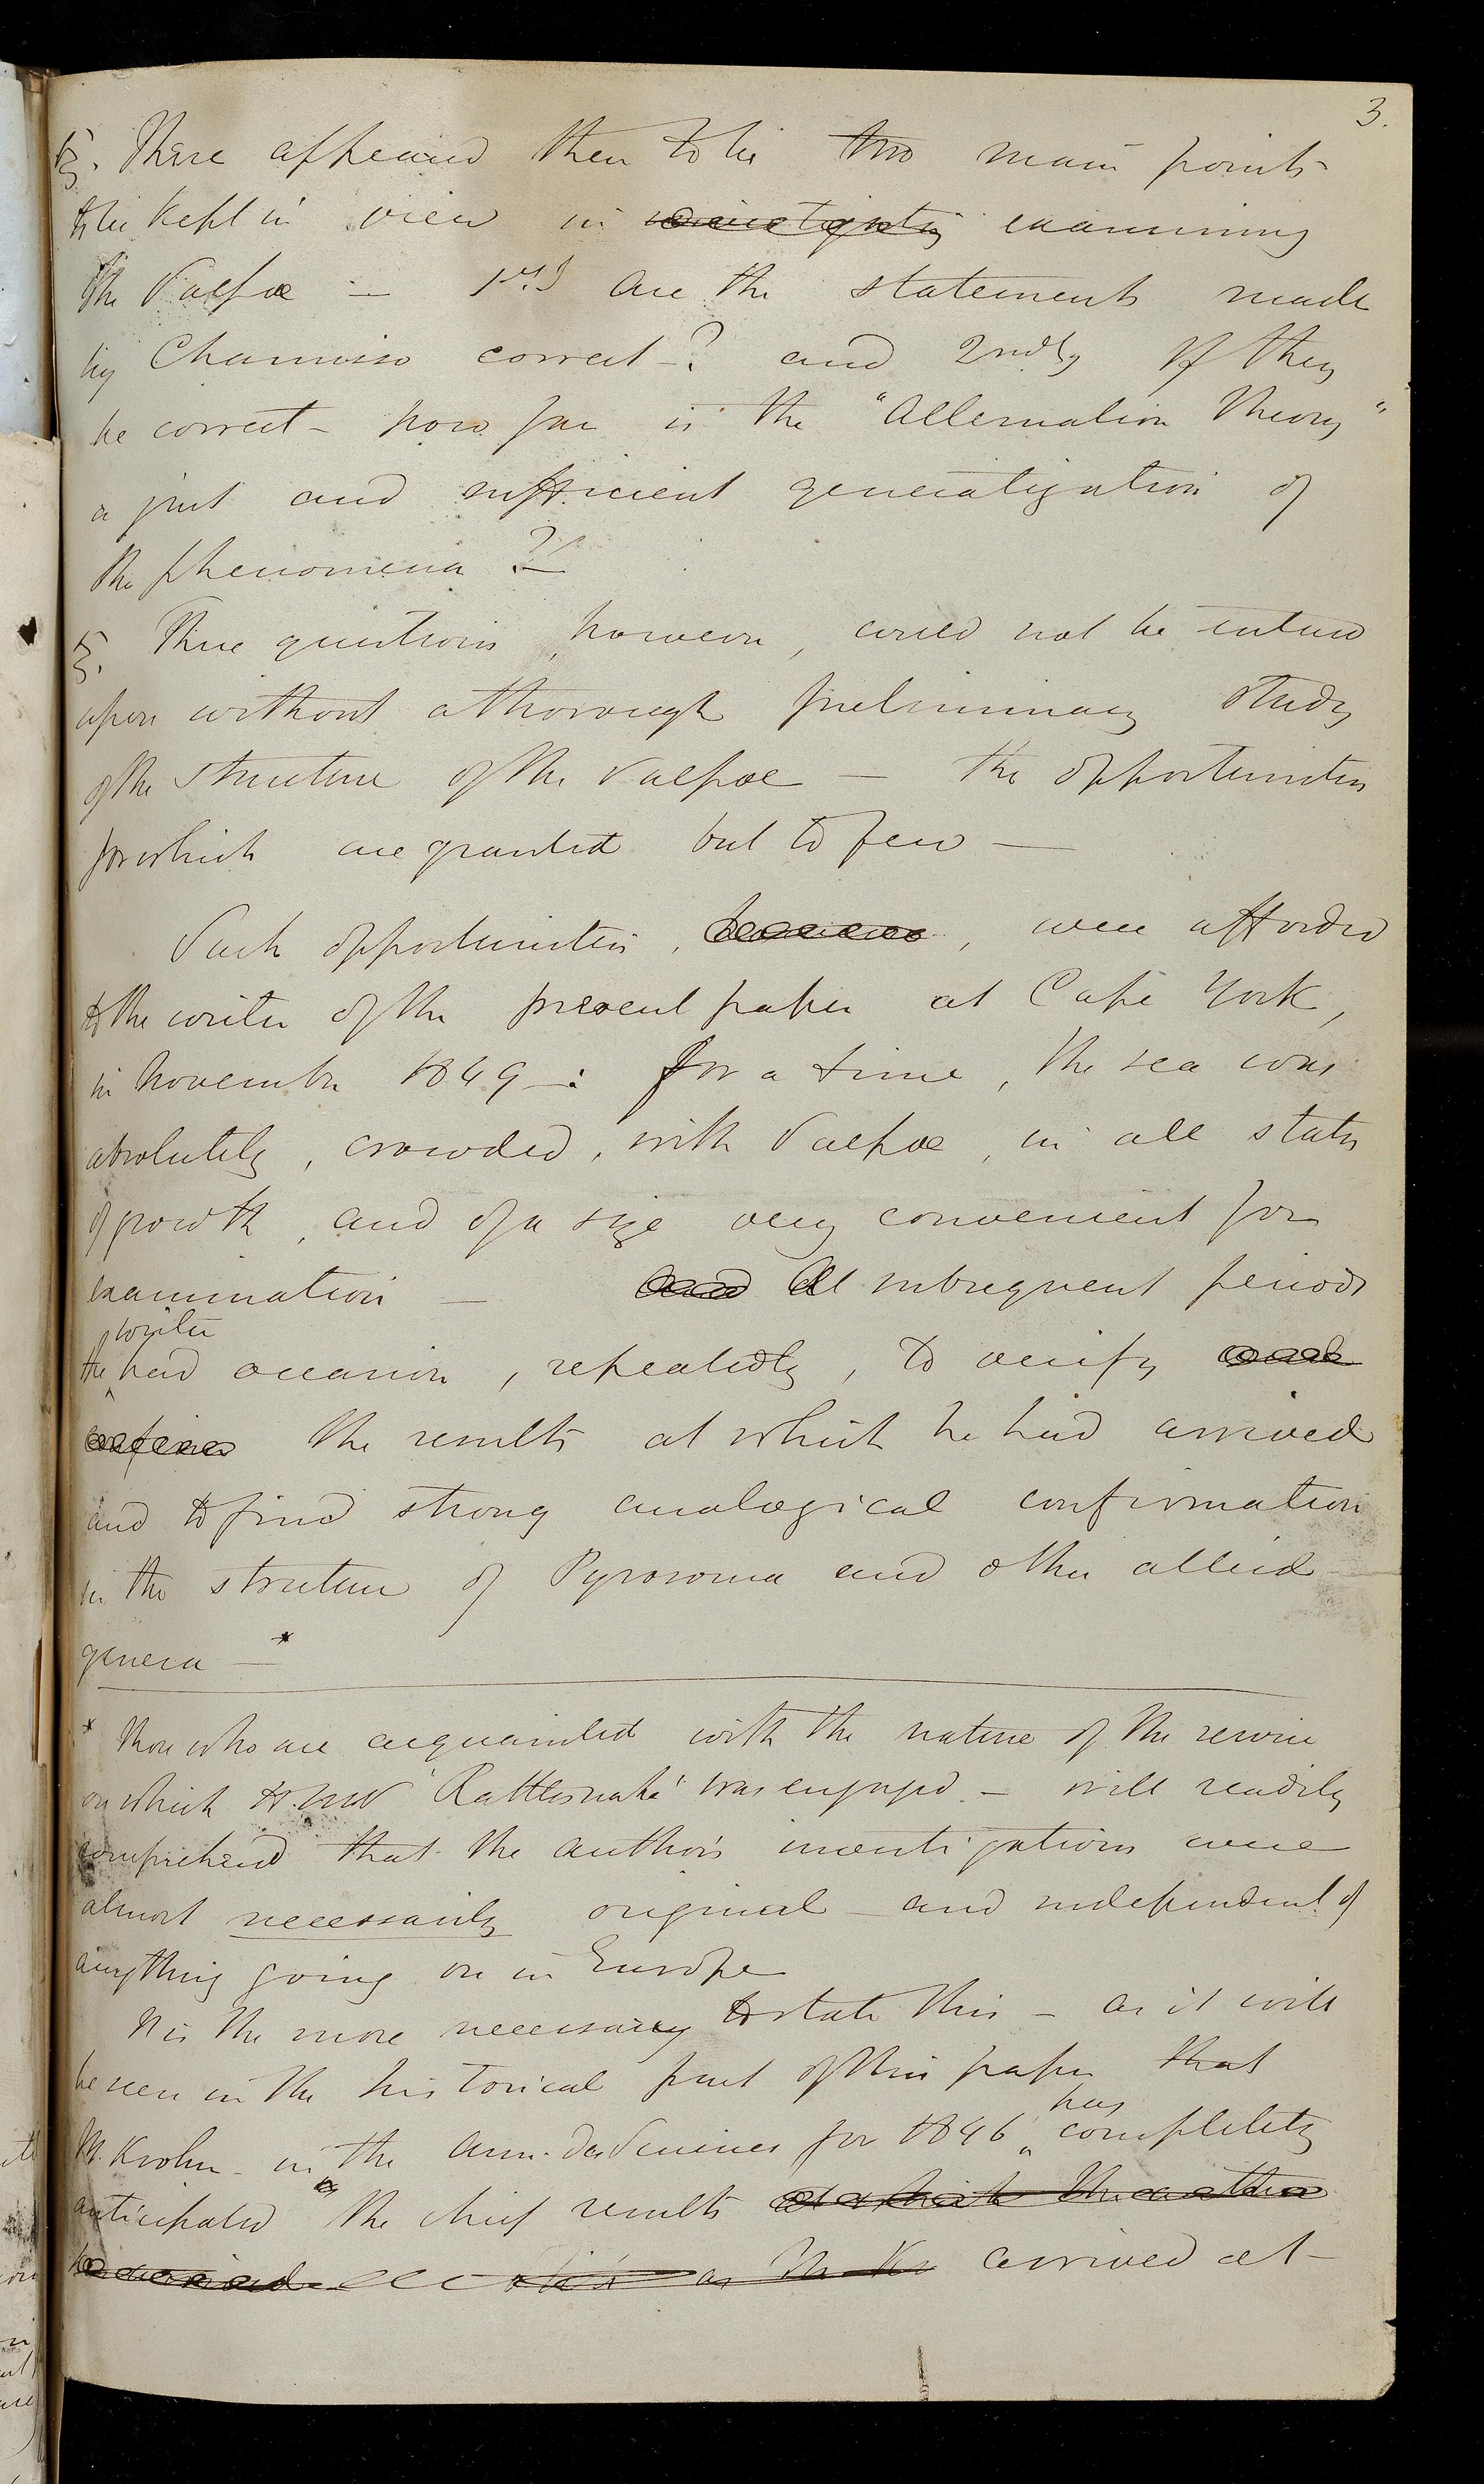 3.
5. There appeared then to be two main points
to be kept in view in investigating examining
the Salpæ — 1st.ly are the statements made
by Chamisso correct—? and 2ndly If they
be correct — how far is the "Alternation theory"
a just and sufficient generalization of
the phenomena ?—
5. These questions, however, could not be entered
upon without a thorough preliminary study
of the structure of the Salpæ — the opportunities
for which are granted but to few —
Such opportunities, however, were afforded
to the writer of the present paper at Cape York,
in November 1849 —: for a time, the sea was
absolutely, crowded, with Salpæ, in all states
of growth, and of a size very convenient for
examination — and At subsequent periods
writer
the had occasion, repeatedly, to verify and
confirm the results at which he had arrived
and to find strong analogical confirmation
in the structure of Pyrosoma and other allied
genera — *
* Those who are acquainted with the nature of the service
on which H.M.S "Rattlesnake" was engaged — will readily
comprehend that the author's investigations were
almost necessarily original — and independent of
anything going on in Europe
It is the more necessary to state this — as it will
be seen in the historical part of this paper that
has
M. Krohn — in the Ann. des Sciences for 1846 completely
anticipated the chief results at which the author
had arrived arrived at —